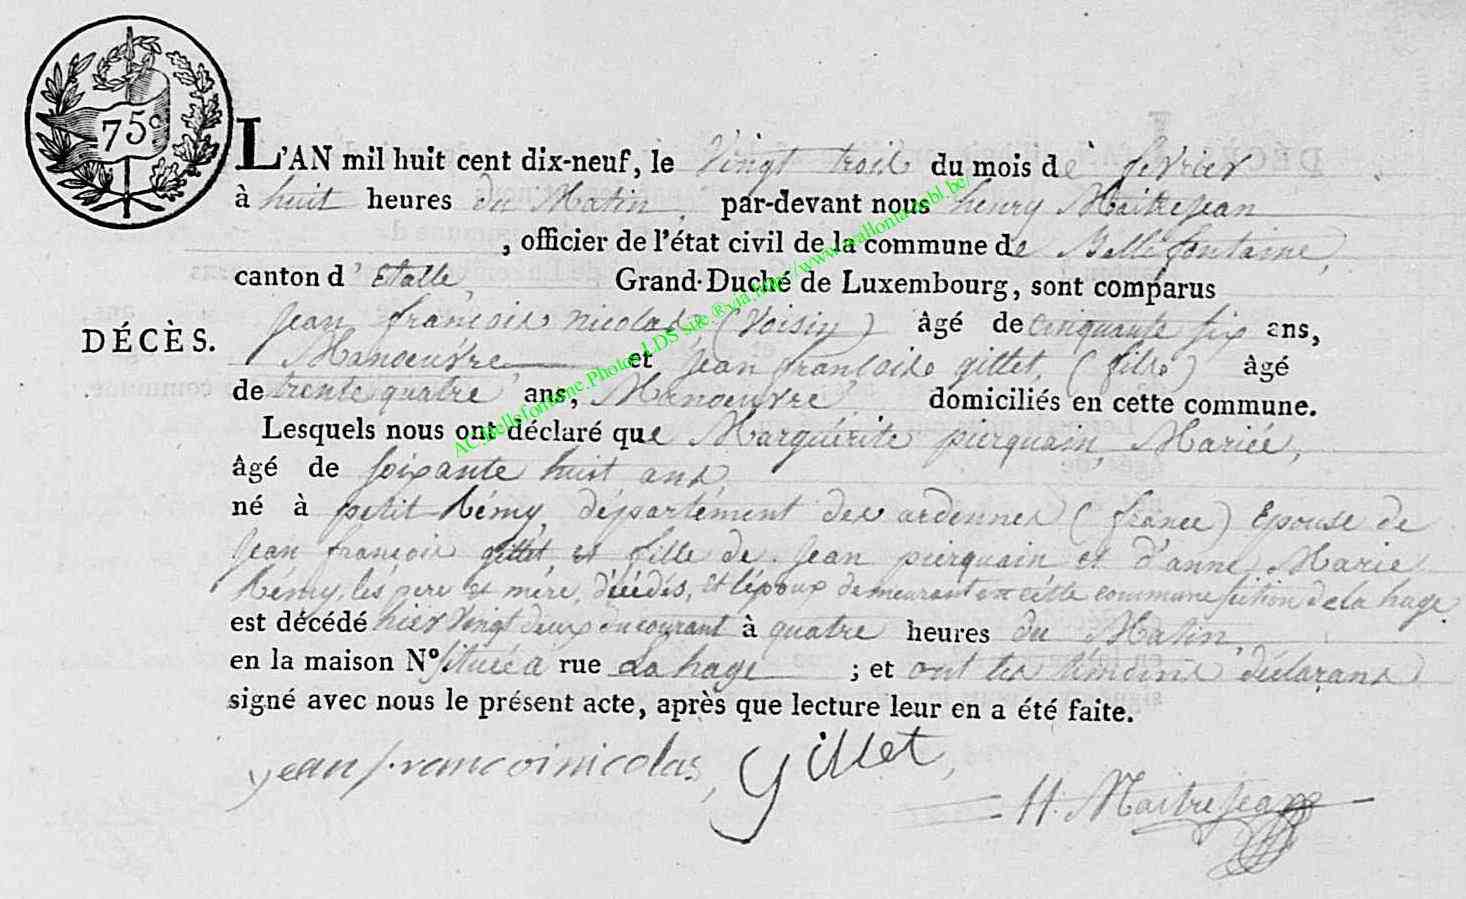 75c
L'AN mil huit cent dix-neuf, le Vingt trois du mois de fevrier
à huit heures du Matin, par-devant nous henry Maitrejean
, officier de l'état civil de la commune de Bellefontaine,
canton d'Etalle, Grand-Duché de Luxembourg, sont comparus
DÉCÈS.
jean françois nicolas (Voisin) âgé de cinquante six ans,
Manoeuvre et jean francois gillet, (fils) âgé
de trente quatre ans, Manoeuvre domiciliés en cette commune.
Lesquels nous ont déclaré que Marguérite pierquain, Mariée,
âgé de soixante huit ans,
né à petit Rémy, département des ardennes (france) Epouse de
jean françois gillet, et fille de jean pierquain et d'anne Marie
Rémy, les pere et mére, décédés, et l'époux demeurant en cette commune section de la hage
est décédé hier Vingt deux du courant à quatre heures du Matin,
en la maison N° située à rue La hage ; et ont les témoins déclarans
signé avec nous le présent acte, après que lecture leur en a été faite.
jean francoi nicolas, gillet,
H. Maitrejean
AC Bellefontaine.Photos LDS Site ® via http://www.wallonia.asbl.be